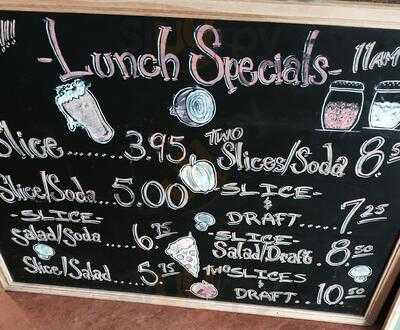 !!!!
-Lunch Specials-
11AM
Slice......3.95
Slice/Soda..5.00
-SLICE-
Salad/Soda....6.75
Slice/Salad....5.75
TWO
Slices/Soda 8.50
-SLICE-
&
DRAFT.....7.25
-SLICE-
Salad/Draft 8.50
TWO SLICES
&
DRAFT..10.50